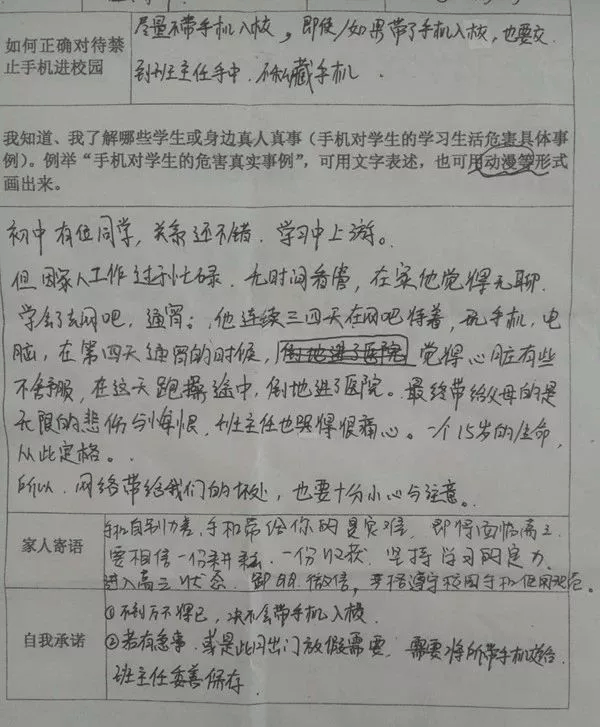 如何正确对待禁
止手机进校园
尽量不带手机入校，即使/如果带了手机入校，也要交
到班主任手中，不私藏手机．
我知道、我了解哪些学生或身边真人真事（手机对学生的学习生活危害具体事
例）。例举“手机对学生的危害真实事例”，可用文字表述，也可用动漫等形式
画出来。
初中有位同学，关系还不错．学习中上游。
但因家人工作过于忙碌．无时间看管，在家他觉得无聊．
学会了去网吧，通宵；他连续三四天在网吧待着，玩手机，电
脑，在第四天通宵的时候，倒地进了医院 觉得心脏有些
不舒服，在这天跑操途中，倒地进了医院。最终带给父母的是
无限的悲伤与悔恨，班主任也哭得很痛心。一个15岁的生命，
从此定格。
所以．网络带给我们的坏处，也要十分小心与注意。
家人寄语
自制力差，手机带给你的是灾难．即将面临高三．
要相信一份耕耘．一份收获．坚持学习的定力．
进入高三状态．卸 微信，严格遵守校园手机使用规范。
自我承诺
①不到万不得已，决不会带手机入校．
②若有急事．或是 出门放假需要．需要将所带手机 给
班主任妥善保存．